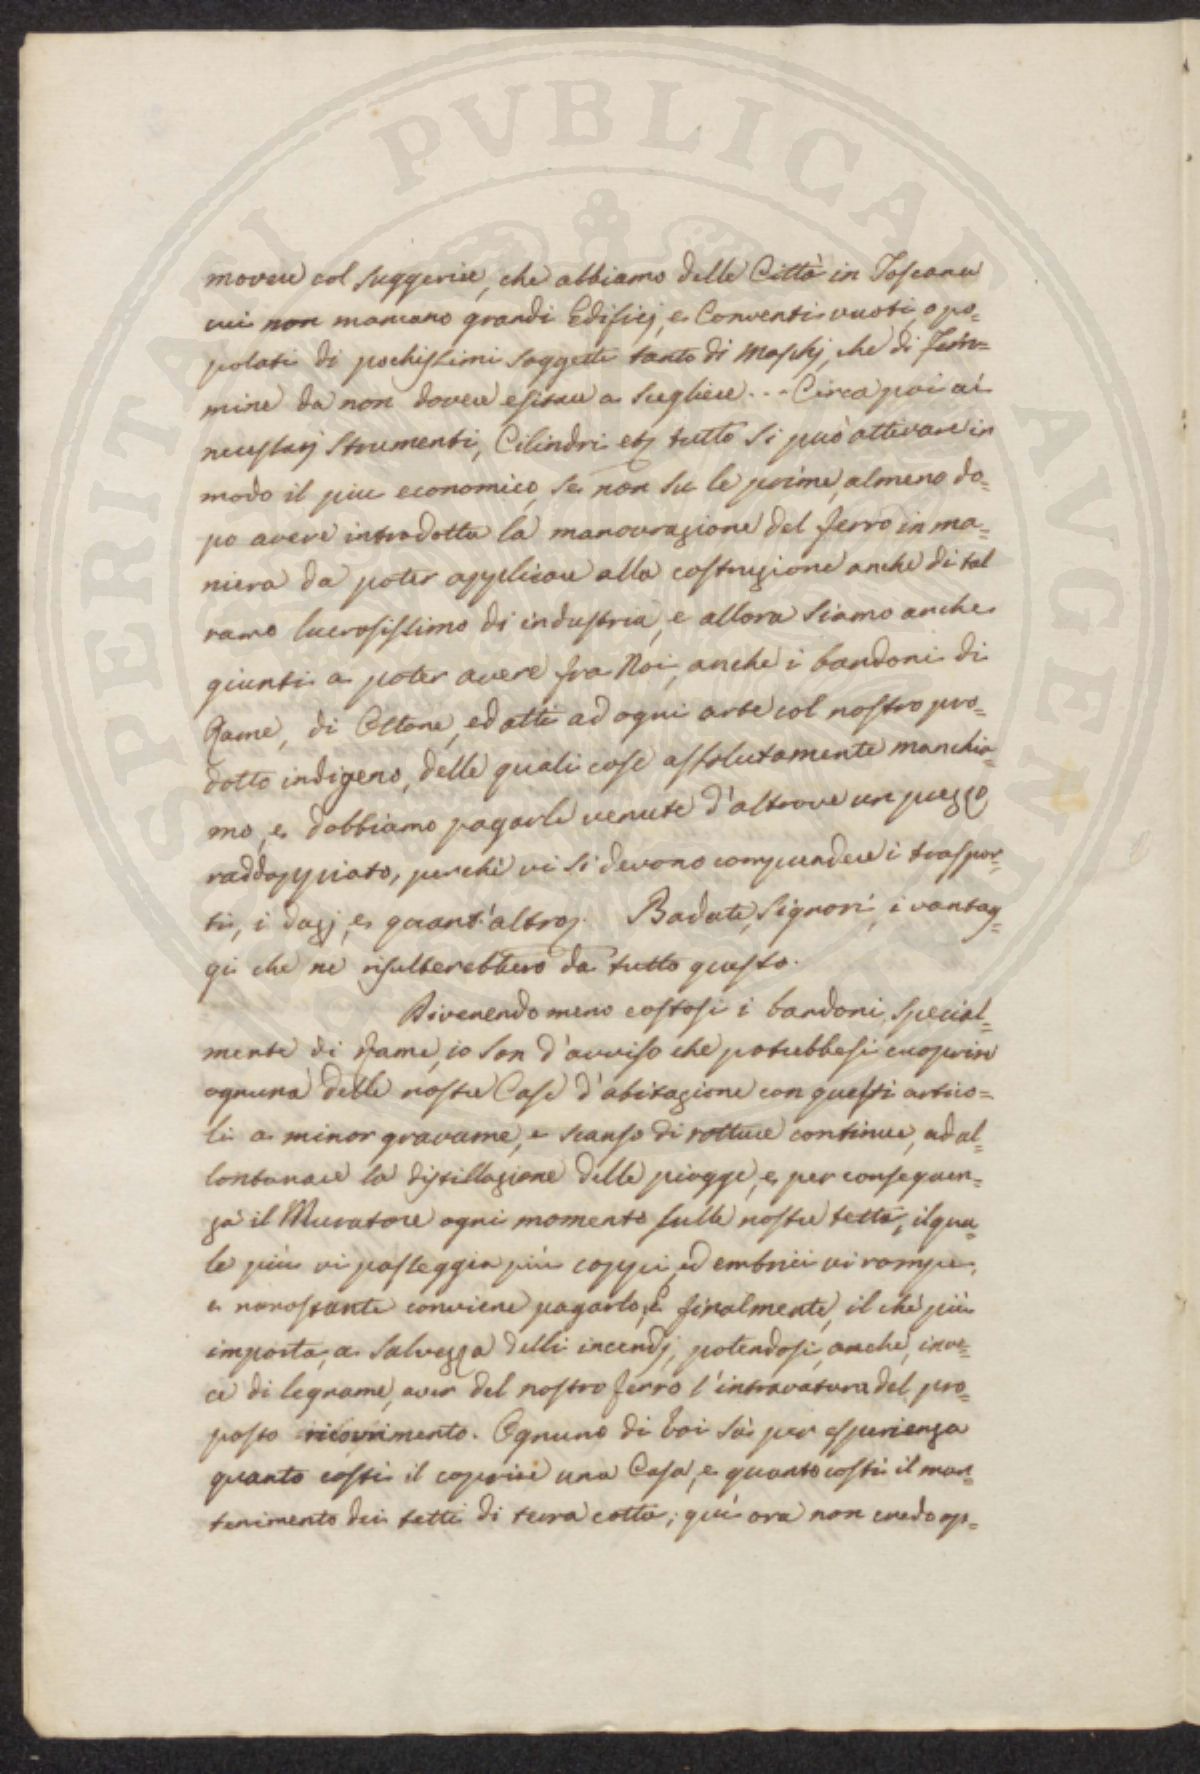 PROSPERITATI PVBLICAE AVGENDAE
movere col suggerire, che abbiamo delle Città in Toscana
cui non mancano grandi Edificj, e Conventi vuoti, o po=
polati di pochissimi soggetti tanto di Maschj, che di Fem=
mine da non dovere esitare a scegliere... Circa poi ai
necessarj strumenti, Cilindri etc tutto si può attivare in
modo il più economico, se non su le prime, almeno do=
po avere introdotta la manovrazione del ferro in ma=
niera da poter applicare alla costruzione anche di tal
ramo lucrosissimo di industria, e allora siamo anche
giunti a poter avere fra Noi, anche i bandoni di
Rame, di Ottone, ed atti ad ogni arte col nostro pro=
dotto indigeno, delle quali cose assolutamente manchia=
mo, e dobbiamo pagarle venute d'altrove un prezzo
raddoppiato, perchè vi si devono comprendere i traspor=
ti, i dazj, e quant'altro. Badate, Signori, i vantag=
gi che ne risulterebbero da tutto questo.
Divenendo meno costosi i bandoni, special=
mente di Rame, io son d'avviso che potrebbesi cuoprire
ognuna delle nostre Case d'abitazione con questi artico=
li a minor gravame, e scanso di rotture continue, ad al=
lontanare la distillazione delle piogge, e per conseguen=
za il Muratore ogni momento sulle nostre tetta, il qua=
le più vi passeggia più coppi, ed embrici vi rompe,
e nonostante conviene pagarlo, E finalmente, il che più
importa, a salvezza delli incendj, potendosi, anche, inve=
ce di legname, aver del nostro ferro l'intravatura del pro=
posto ricovrimento. Ognuno di Voi sà per esperienza
quanto costi il coprire una Casa, e quanto costi il man=
tenimento dei tetti di terra cotta; quì ora non credo op=